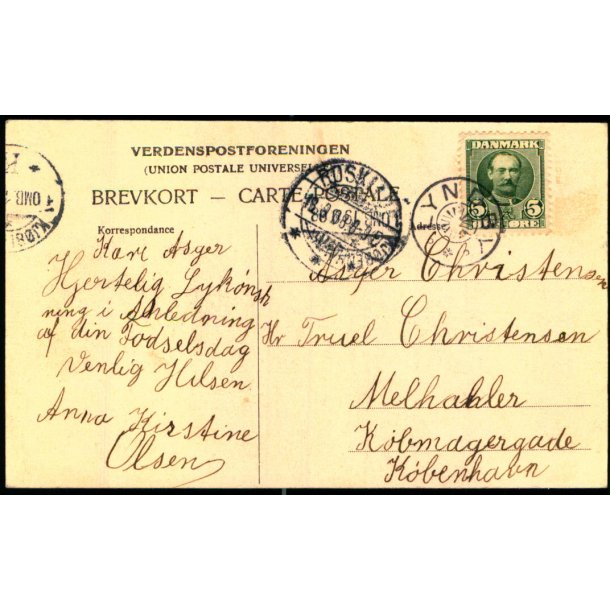 VERDENSPOSTFORENINGEN
(UNION POSTALE UNIVERSEL
BREVKORT — CARTE POSTALE
Korrespondance
Kære Asger
Hjertelig Lykønsk
ning i Anledning
af din Fødselsdag
Venlig Hilsen
Anna Kirstine
Olsen
DANMARK
5 5
ØRE
ROSKILDE
LYNG
KJØB
OMB. 1
K
Adresse
Asger Christensen
Hr Truel Christensen
Melhahler
Købmagergade
København